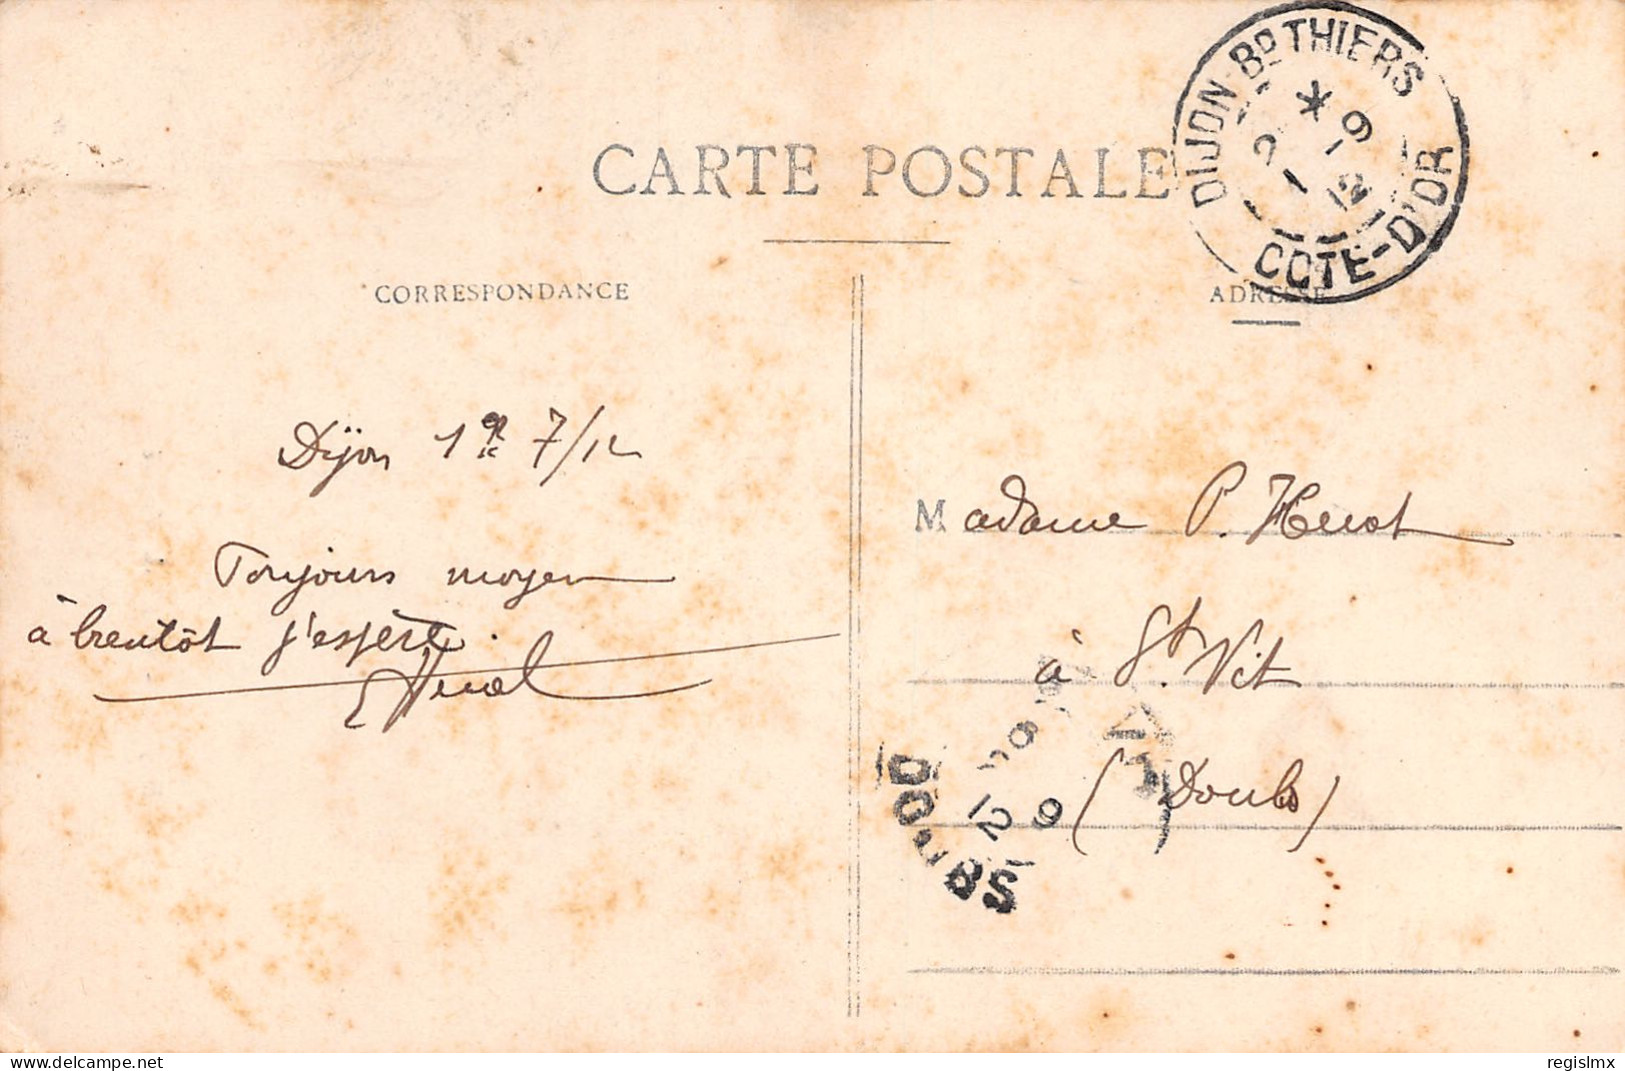 CARTE POSTALE
CORRESPONDANCE
ADRESSE
DIJON-Bᴰ THIERS
* 9
2 -
1 12
COTE-D'OR
Dijon 1er 7/12
Toujours moyen
à bientôt j'espère.
Madame P. Huot
à St. Vit
(Doubs)
9
12
DOUBS
delcampe.net
regislmx